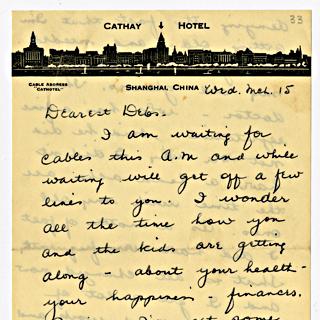 33
CATHAY HOTEL
CABLE ADDRESS
"CATHOTEL"
SHANGHAI CHINA Wed. Mch. 15
Dearest Debs -
I am waiting for
cables this A.M and while
waiting will get off a few
lines to you. I wonder
all the time how you
and the kids are getting
along - about your health -
your happiness - finances.